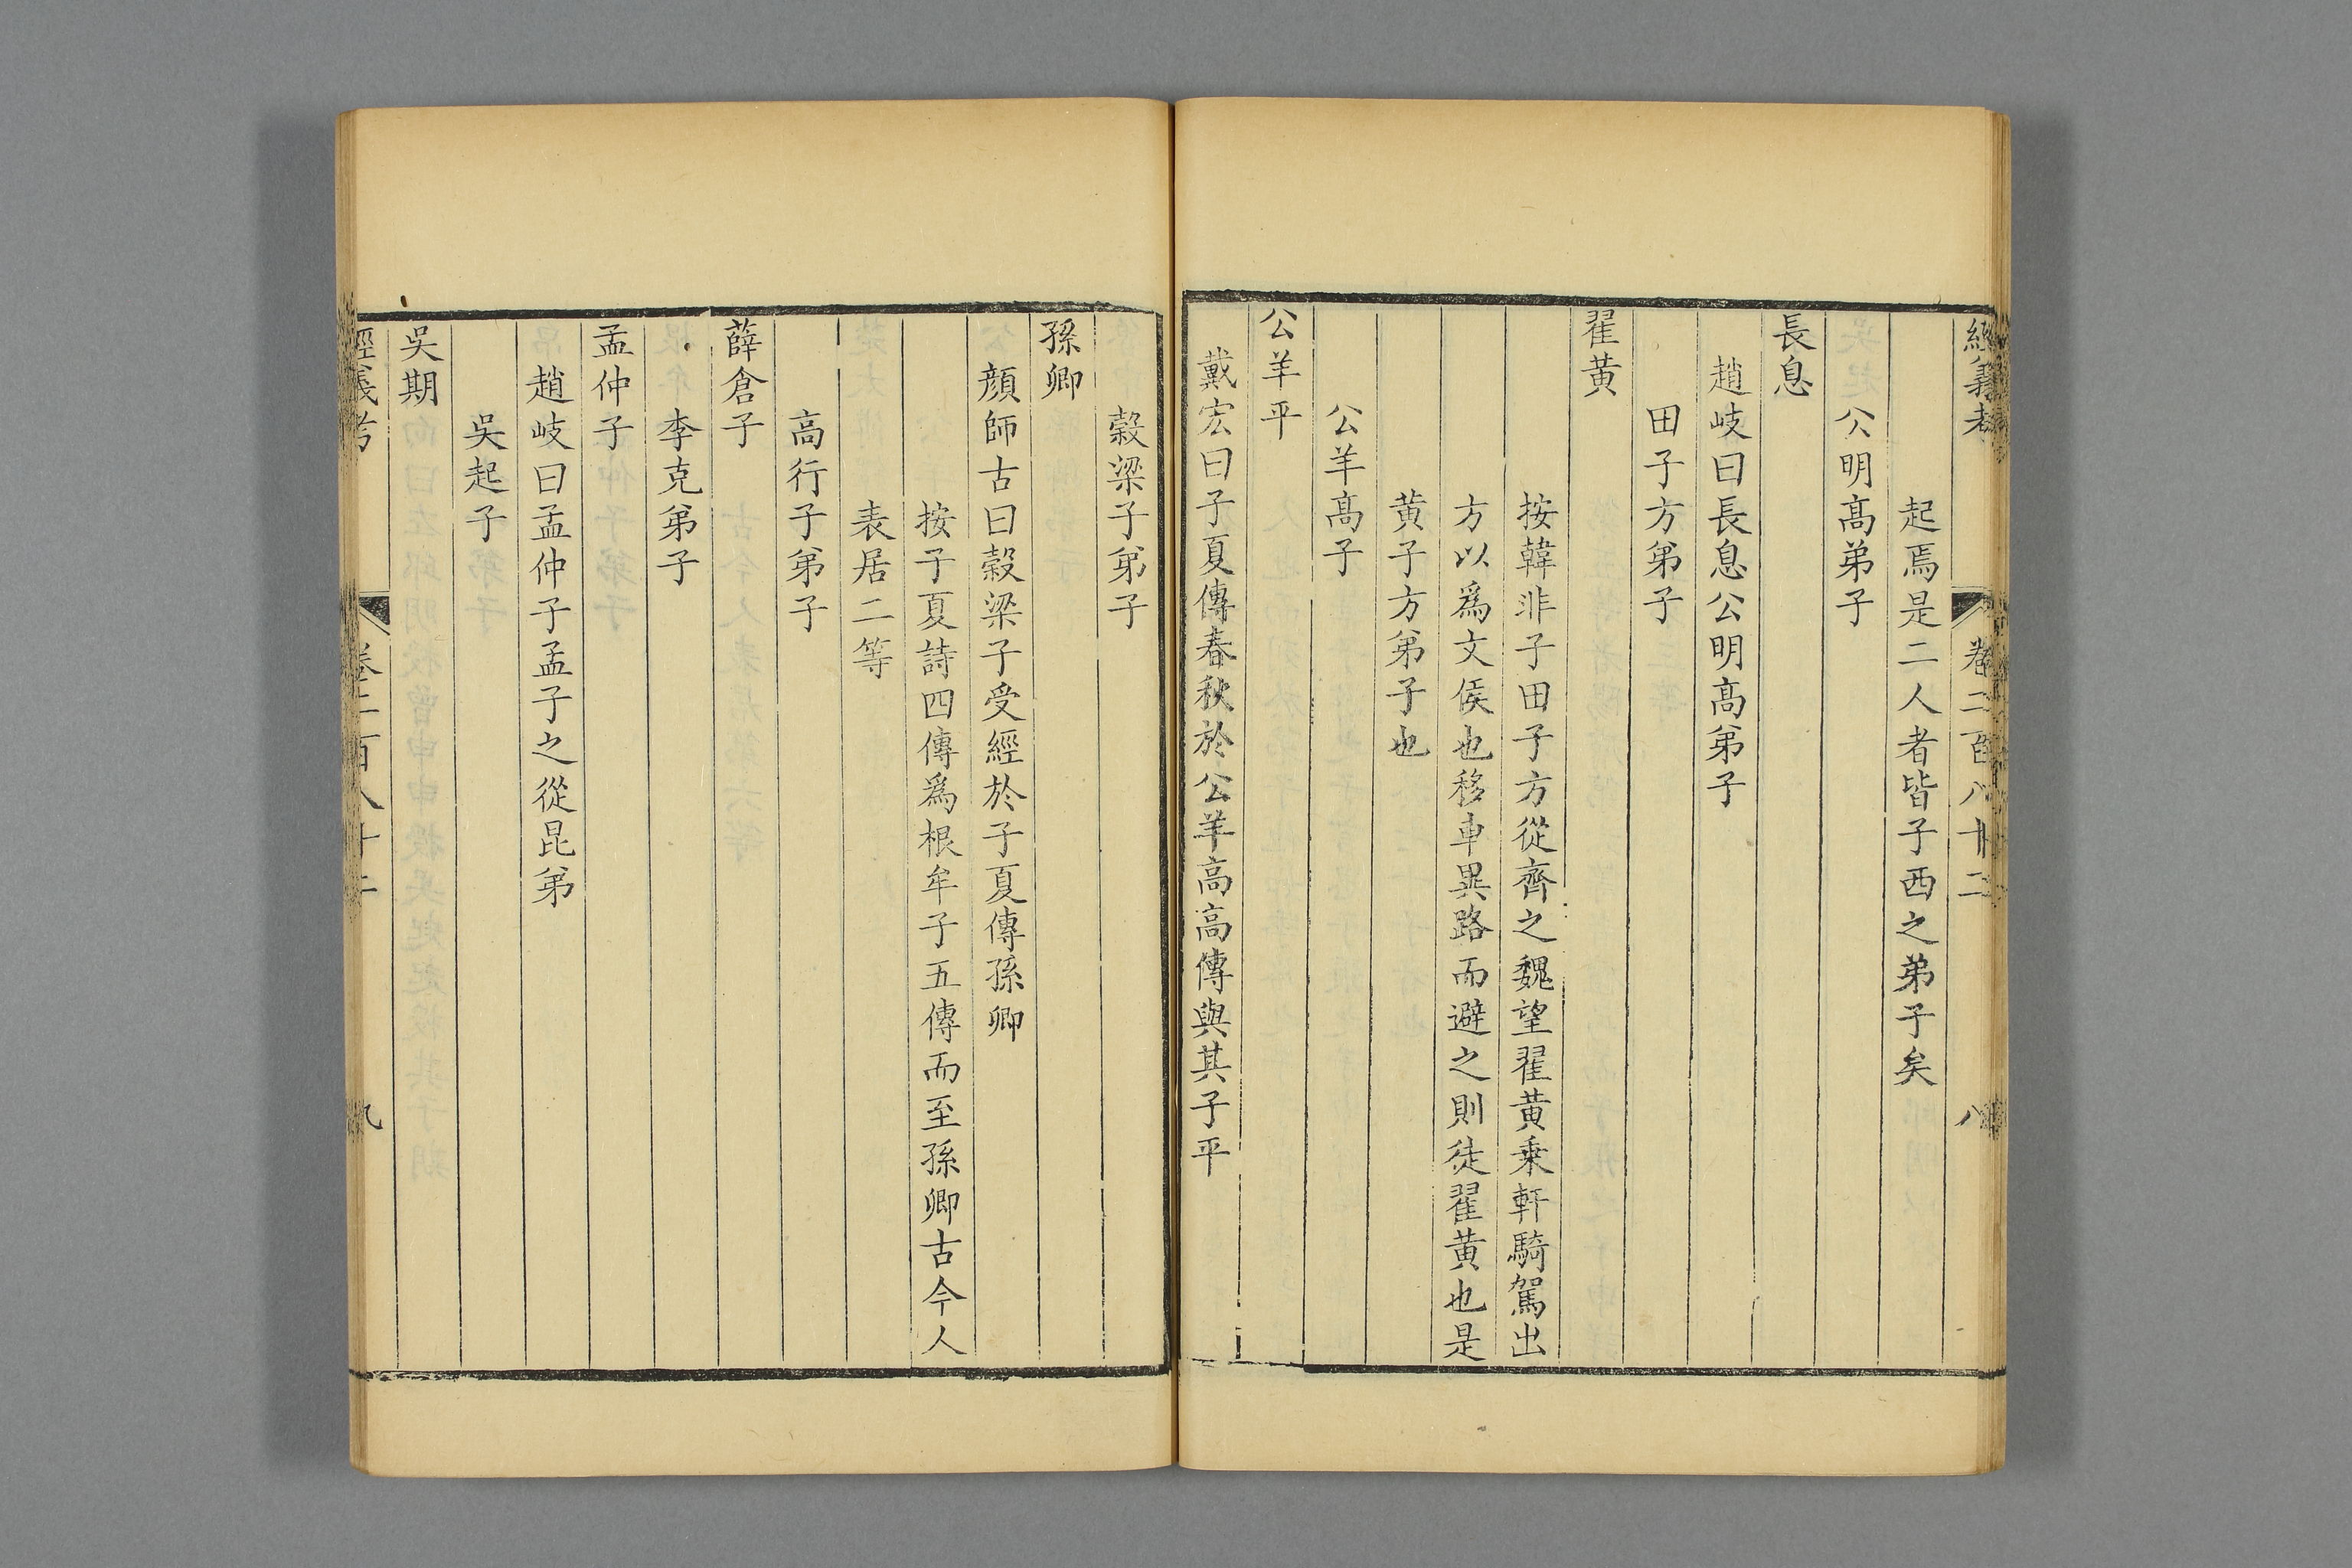 經義考 卷二百八十二 八
起焉是二人者皆子西之弟子矣
公明髙弟子
長息
趙岐曰長息公明髙弟子
田子方弟子
翟黄
按韓非子田子方從齊之魏望翟黄乗軒騎駕出
方以為文侯也移車異路而避之則徒翟黄也是
黄子方弟子也
公羊髙子
公羊平
戴宏曰子夏傳春秋於公羊高高傳與其子平
榖梁子弟子
孫卿
顔師古曰榖梁子受經於子夏傳孫卿
按子夏詩四傳為根牟子五傳而至孫卿古今人
表居二等
高行子弟子
薛倉子
李克弟子
孟仲子
趙岐曰孟仲子孟子之從昆弟
吳起子
吳期
經義考 卷二百八十二 九